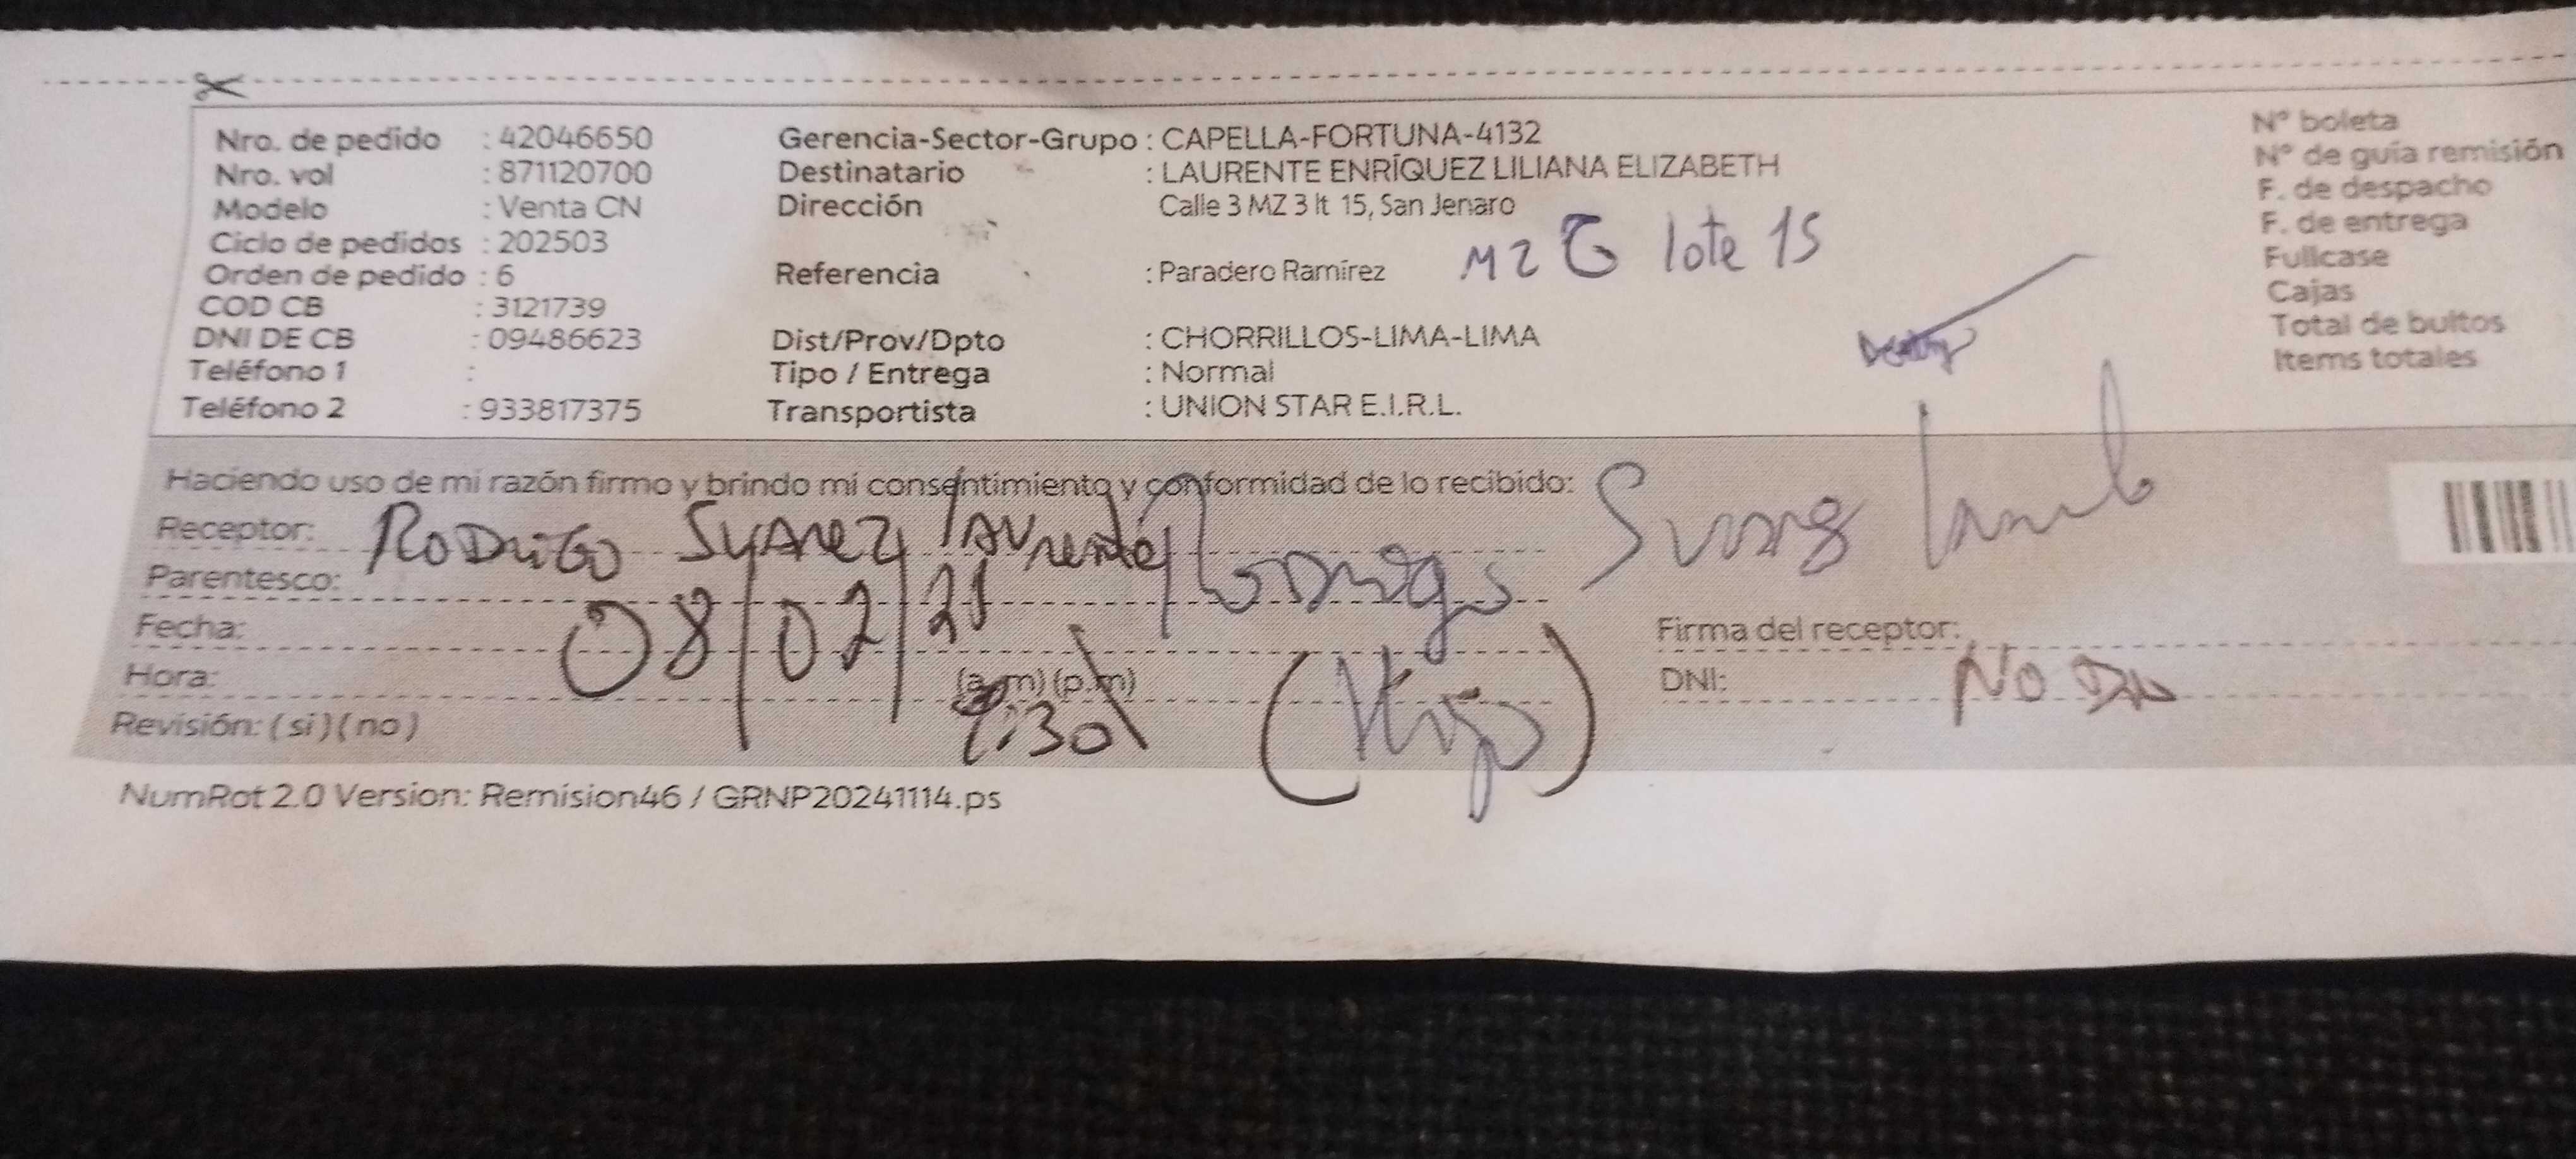 Nro. de pedido : 42046650
Nro. vol : 871120700
Modelo : Venta CN
Ciclo de pedidos : 202503
Orden de pedido : 6
COD CB : 3121739
DNI DE CB : 09486623
Teléfono 1 :
Teléfono 2 : 933817375
Gerencia-Sector-Grupo : CAPELLA-FORTUNA-4132
Destinatario : LAURENTE ENRÍQUEZ LILIANA ELIZABETH
Dirección Calle 3 MZ 3 lt 15, San Jenaro
MZ G lote 15
Referencia : Paradero Ramírez
Dist/Prov/Dpto : CHORRILLOS-LIMA-LIMA
Tipo / Entrega : Normal
Transportista : UNION STAR E.I.R.L.
N° boleta
N° de guía remisión
F. de despacho
F. de entrega
Fullcase
Cajas
Total de bultos
Items totales
Haciendo uso de mi razón firmo y brindo mi consentimiento y conformidad de lo recibido:
Receptor: Rodrigo Suarez Laurente
Rodrigo Suarez
Parentesco:
(Hijo)
Fecha: 08/02/25
Hora: (a.m) (p.m)
9:30
Revisión: (si) (no)
Firma del receptor:
DNI: NO
NumRot 2.0 Version: Remision46 / GRNP20241114.ps